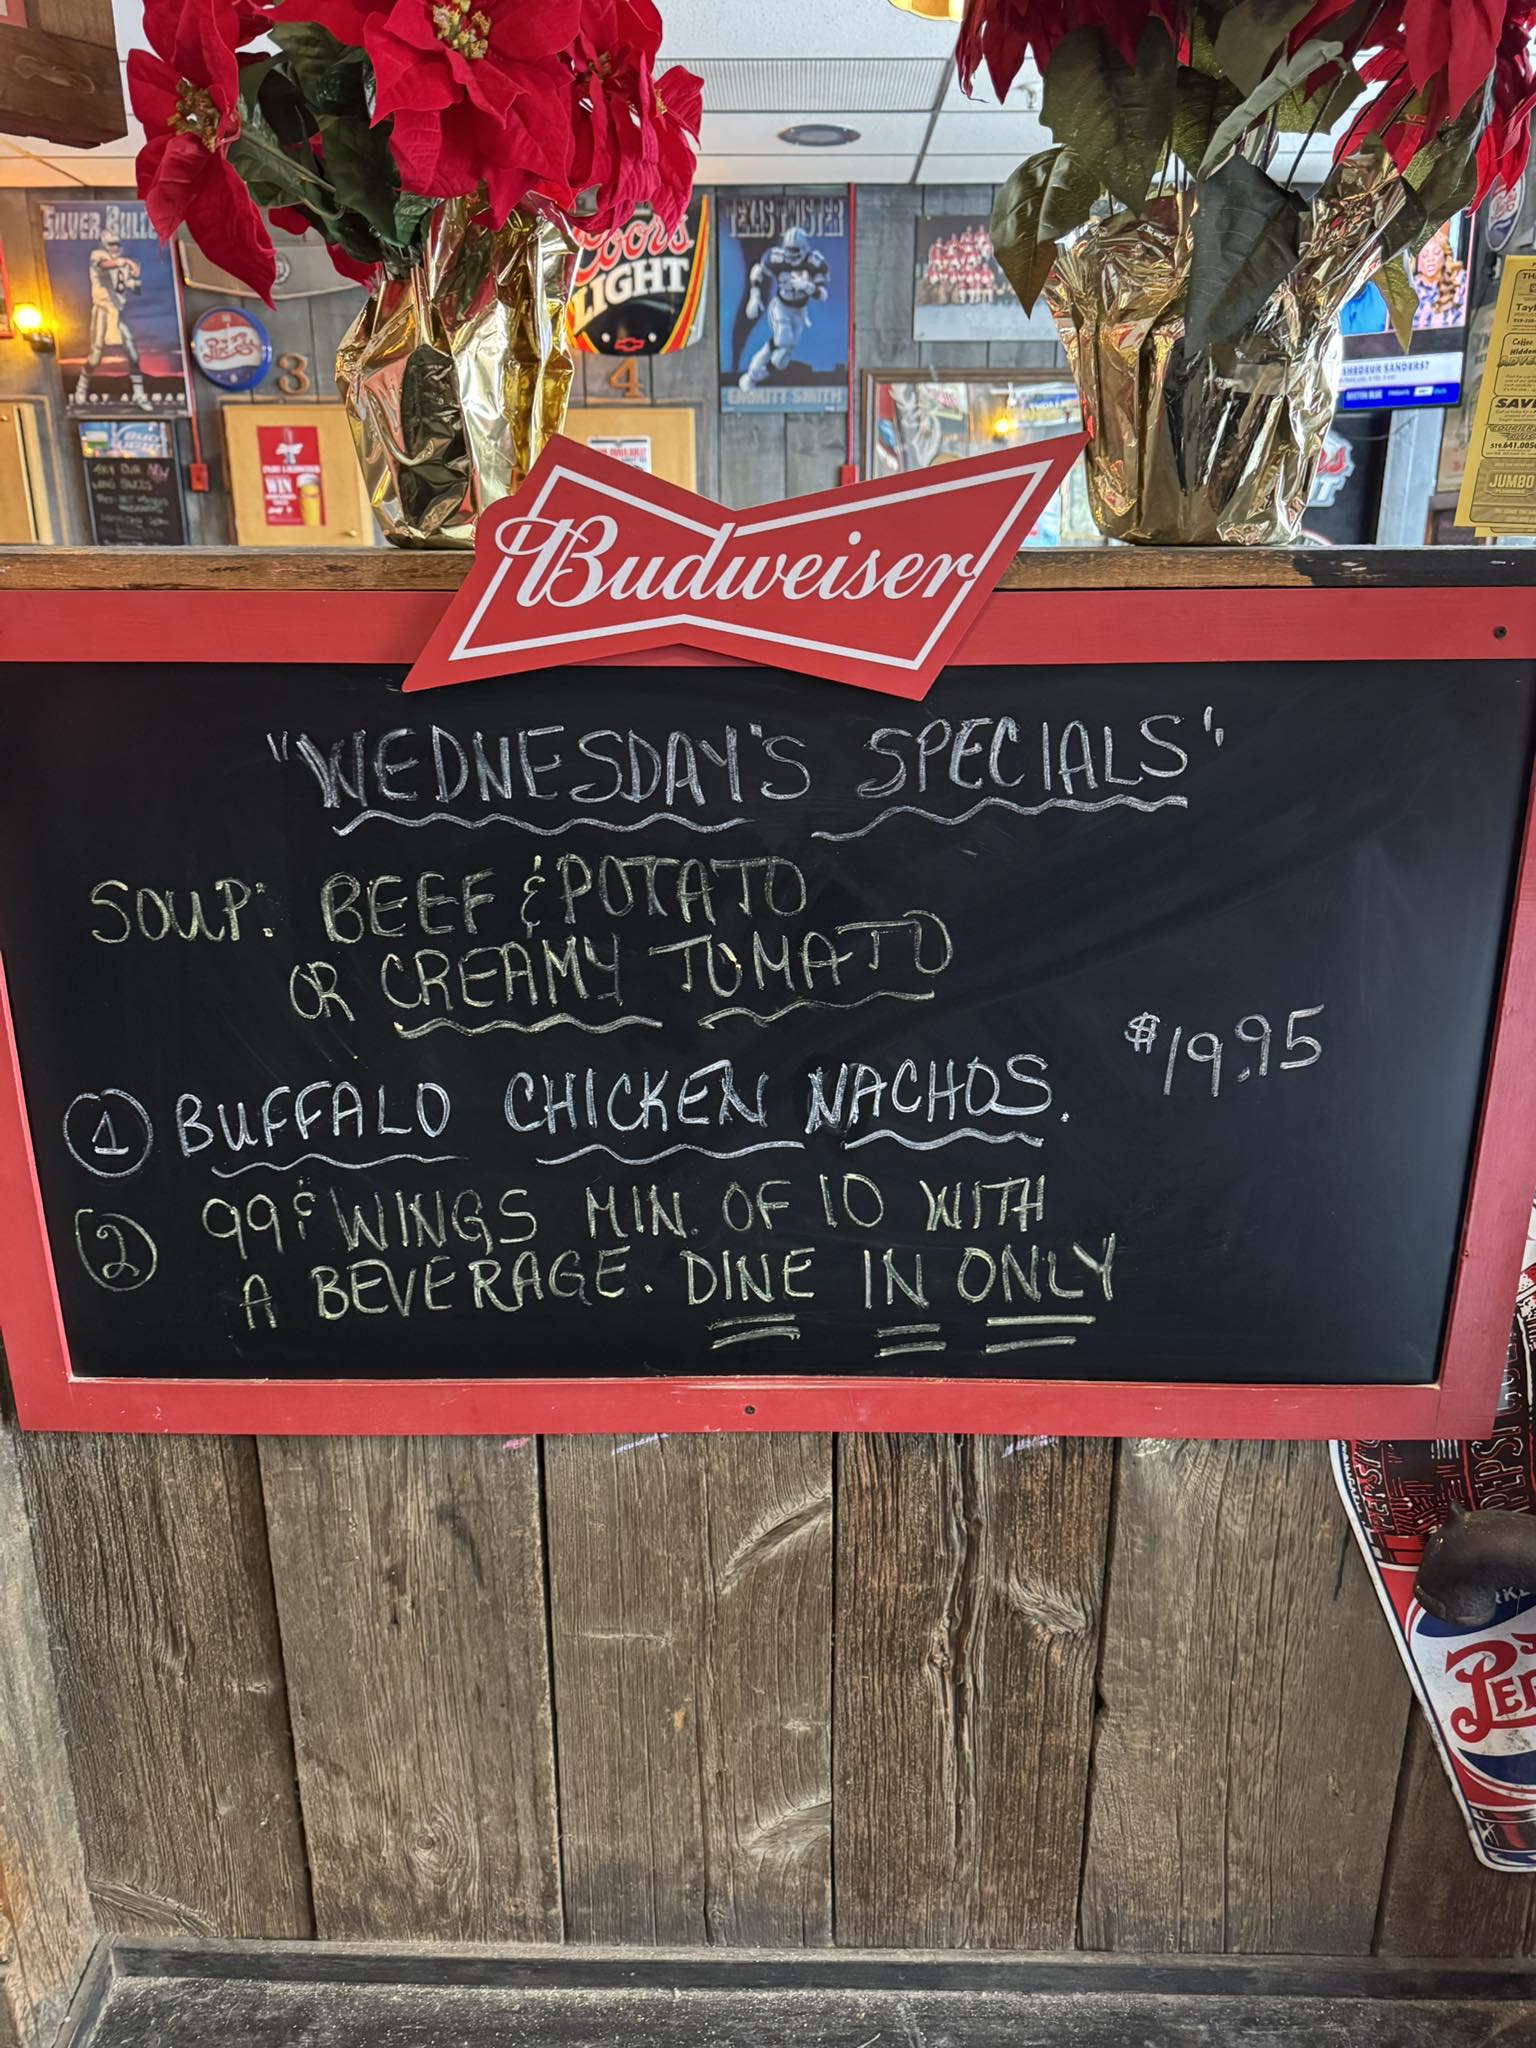 SILVER BULLET
Coors
LIGHT
TEXAS TWISTER
EMMITT SMITH
3
4
WIN
SHEDEUR SANDERS?
SAVE
519.641.005
JUMBO
Budweiser
"WEDNESDAY'S SPECIALS"
SOUP: BEEF & POTATO
OR CREAMY TOMATO
① BUFFALO CHICKEN NACHOS. $19.95
② 99¢ WINGS MIN. OF 10 WITH
A BEVERAGE. DINE IN ONLY